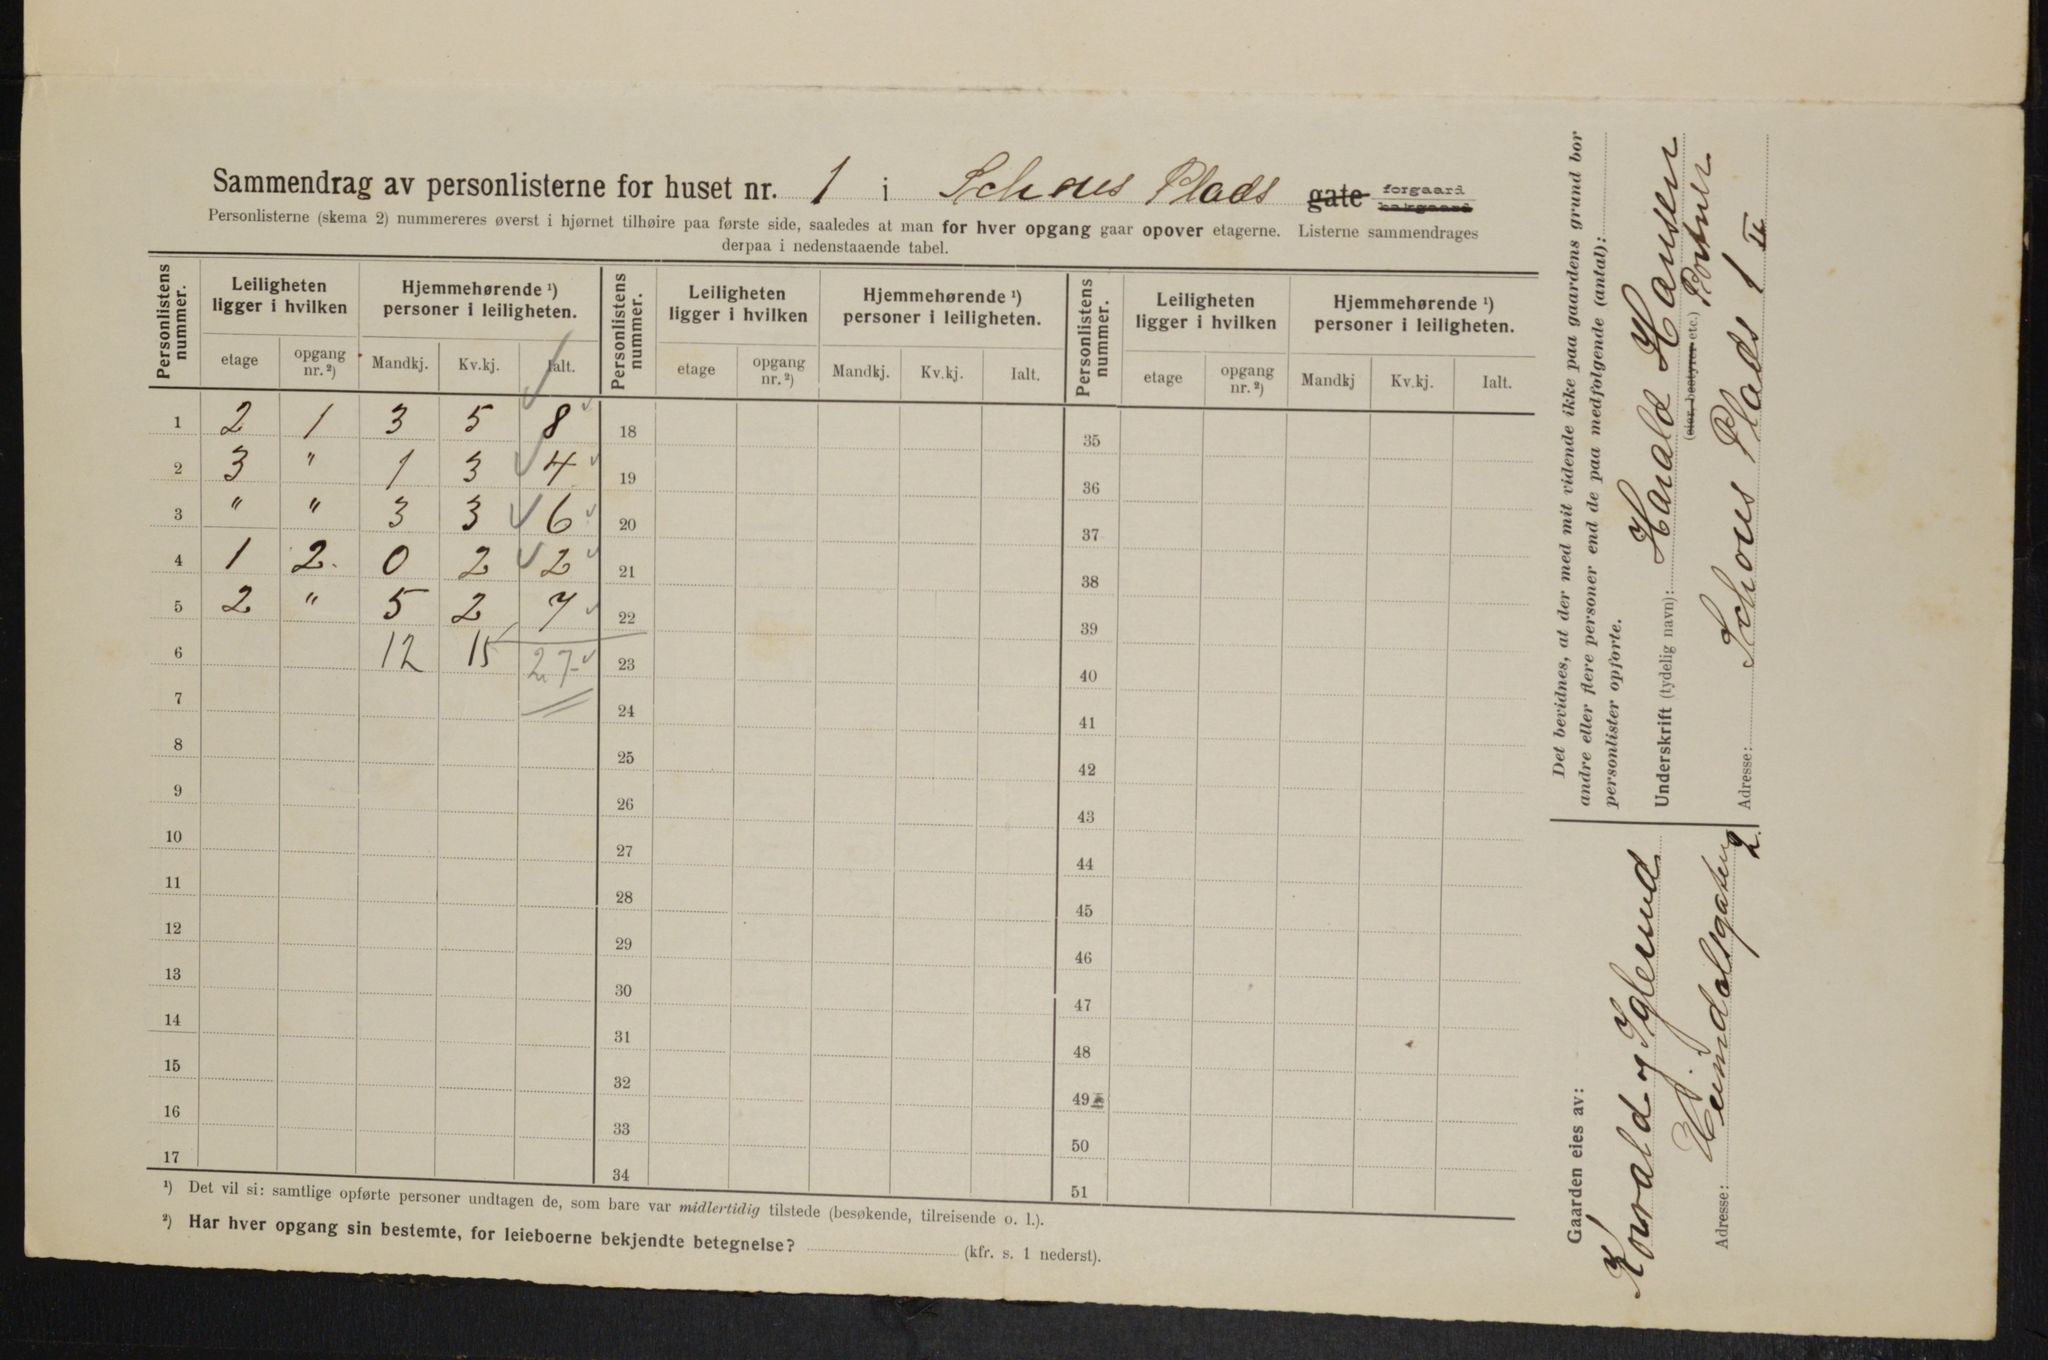 Sammendrag av personlisterne for huset nr. 1 i Schous Plads gate forgaard bakgaard
Personlisterne (skema 2) nummereres øverst i hjørnet tilhøire paa første side, saaledes at man for hver opgang gaar opover etagerne. Listerne sammendrages
derpaa i nedenstaaende tabel.
Personlistens nummer. Leiligheten ligger i hvilken Hjemmehørende ¹) personer i leiligheten. Personlistens nummer. Leiligheten ligger i hvilken Hjemmehørende ¹) personer i leiligheten. Personlistens nummer. Leiligheten ligger i hvilken Hjemmehørende ¹) personer i leiligheten.
etage opgang nr. ²) Mandkj. Kv.kj. Ialt. etage opgang nr. ²) Mandkj. Kv.kj. Ialt. etage opgang nr. ²) Mandkj Kv.kj. Ialt.
1 2 1 3 5 8 18 35
2 3 " 1 3 4 19 36
3 " " 3 3 6 20 37
4 1 2. 0 2 2 21 38
5 2 " 5 2 7 22 39
6 12 15 27 23 40
7 24 41
8 25 42
9 26 43
10 27 44
11 28 45
12 29 46
13 30 47
14 31 48
15 32 49
16 33 50
17 34 51
¹) Det vil si: samtlige opførte personer undtagen de, som bare var midlertidig tilstede (besøkende, tilreisende o. l.).
²) Har hver opgang sin bestemte, for leieboerne bekjendte betegnelse? (kfr. s. 1 nederst).
Det bevidnes, at der med mit vidende ikke paa gaardens grund bor
andre eller flere personer end de paa medfølgende (antal):
personlister opførte.
Underskrift (tydelig navn): Harald Hansen
(eier, bestyrer etc.) Portner
Adresse: Schous Plads 1 II
Gaarden eies av:
Korvald og Yglemd
Adresse: Heimdalsgaten 2.